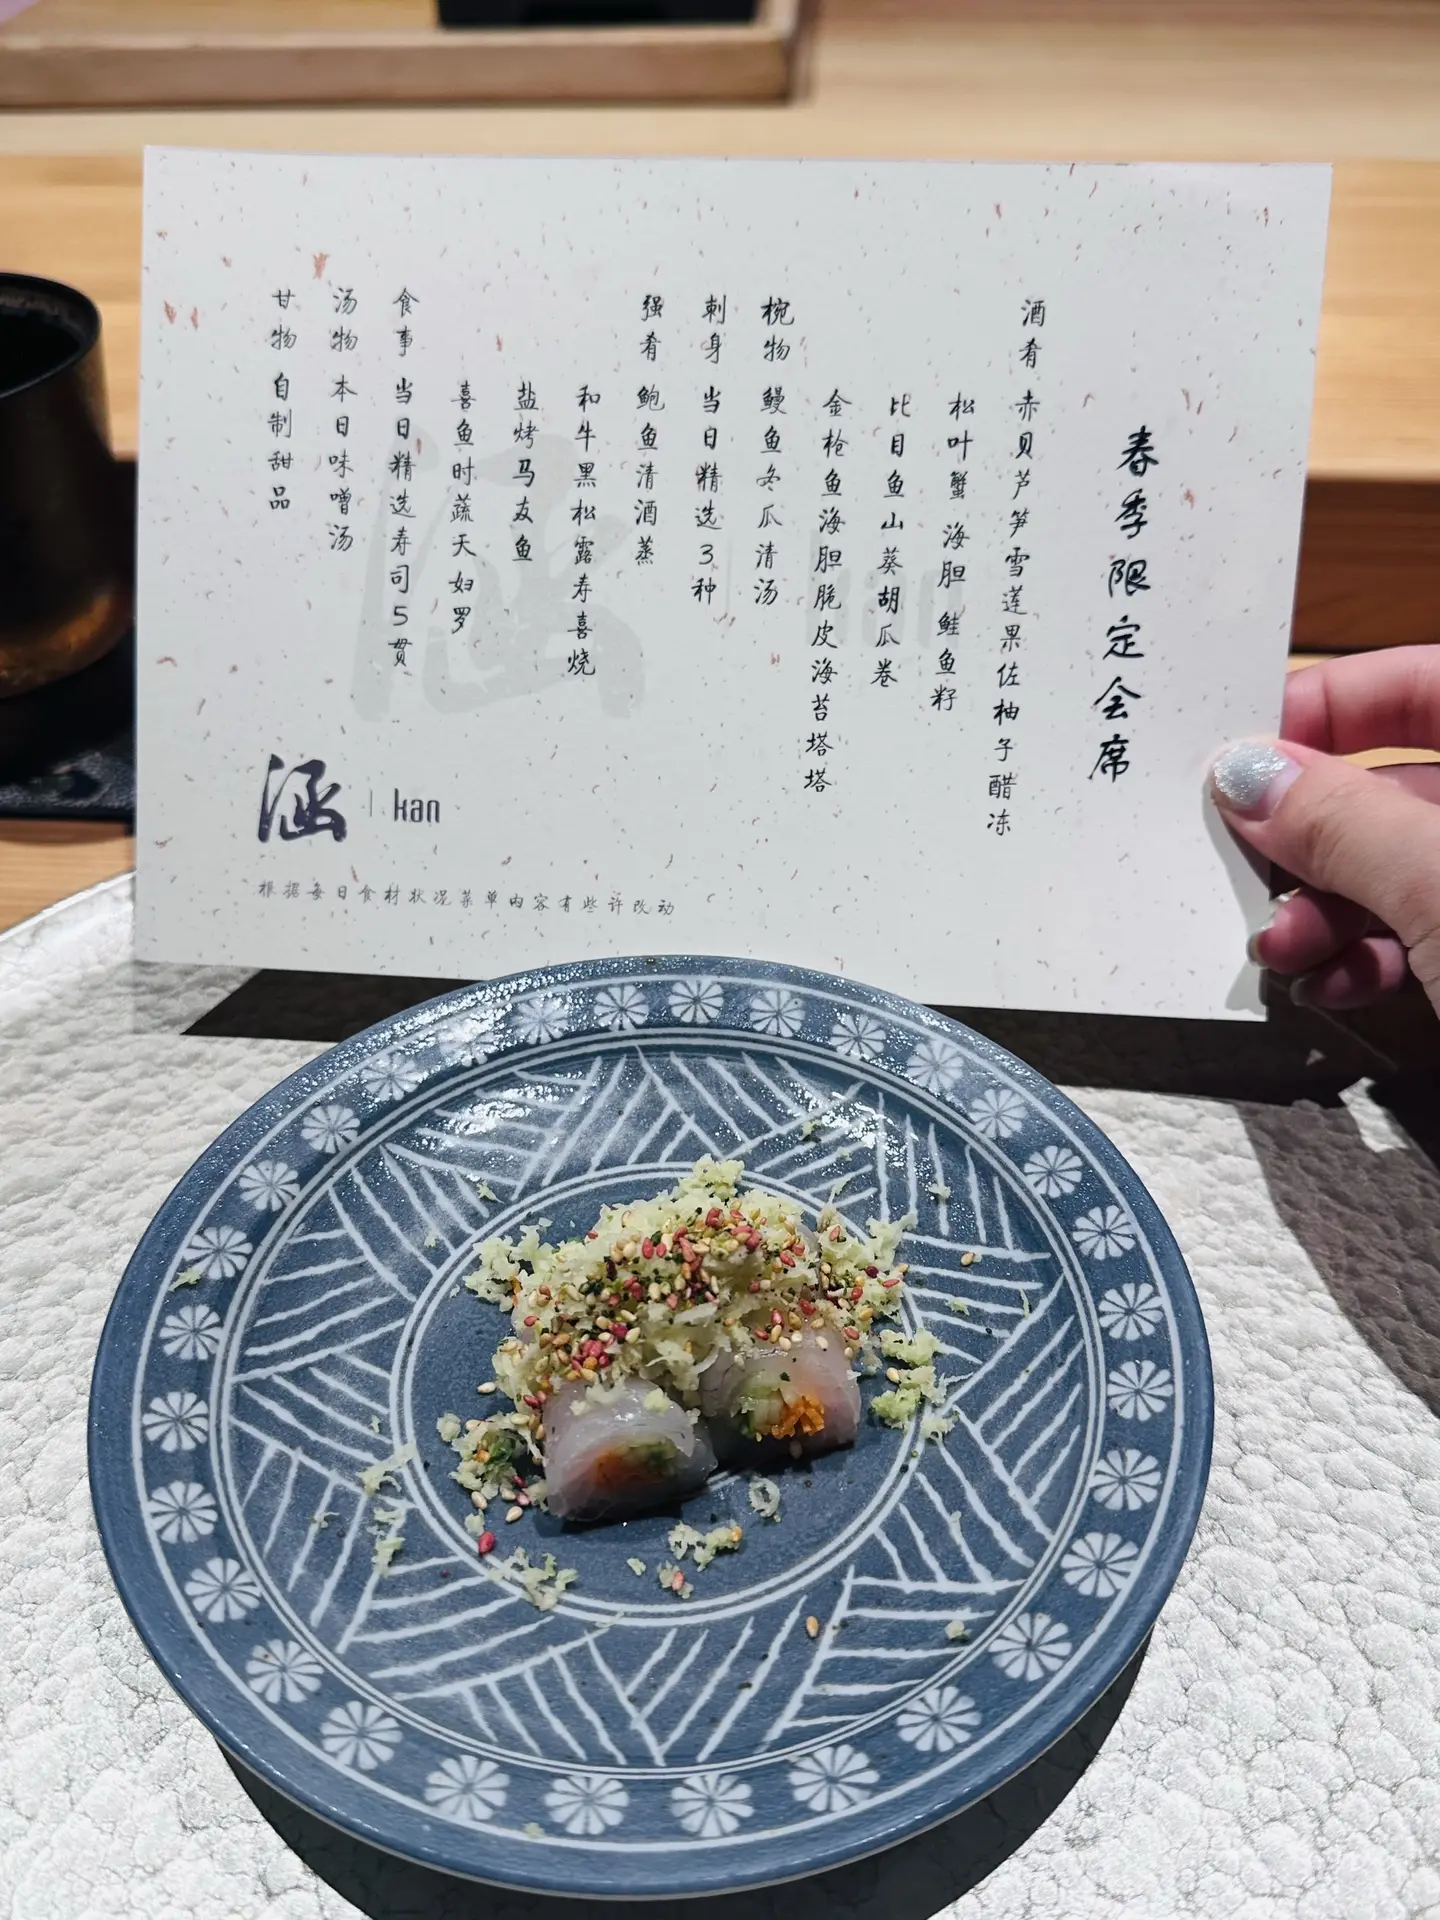 春季限定会席
酒肴 赤贝芦笋雪莲果佐柚子醋冻
松叶蟹 海胆 鲑鱼籽
比目鱼山葵胡瓜卷
金枪鱼海胆脆皮海苔塔塔
椀物 鳗鱼冬瓜清汤
刺身 当日精选3种
强肴 鲍鱼清酒蒸
和牛黑松露寿喜烧
盐烤马友鱼
喜鱼时蔬天妇罗
食事 当日精选寿司5贯
汤物 本日味噌汤
甘物 自制甜品
涵 | kan
根据每日食材状况菜单内容有些许改动
涵 | kan